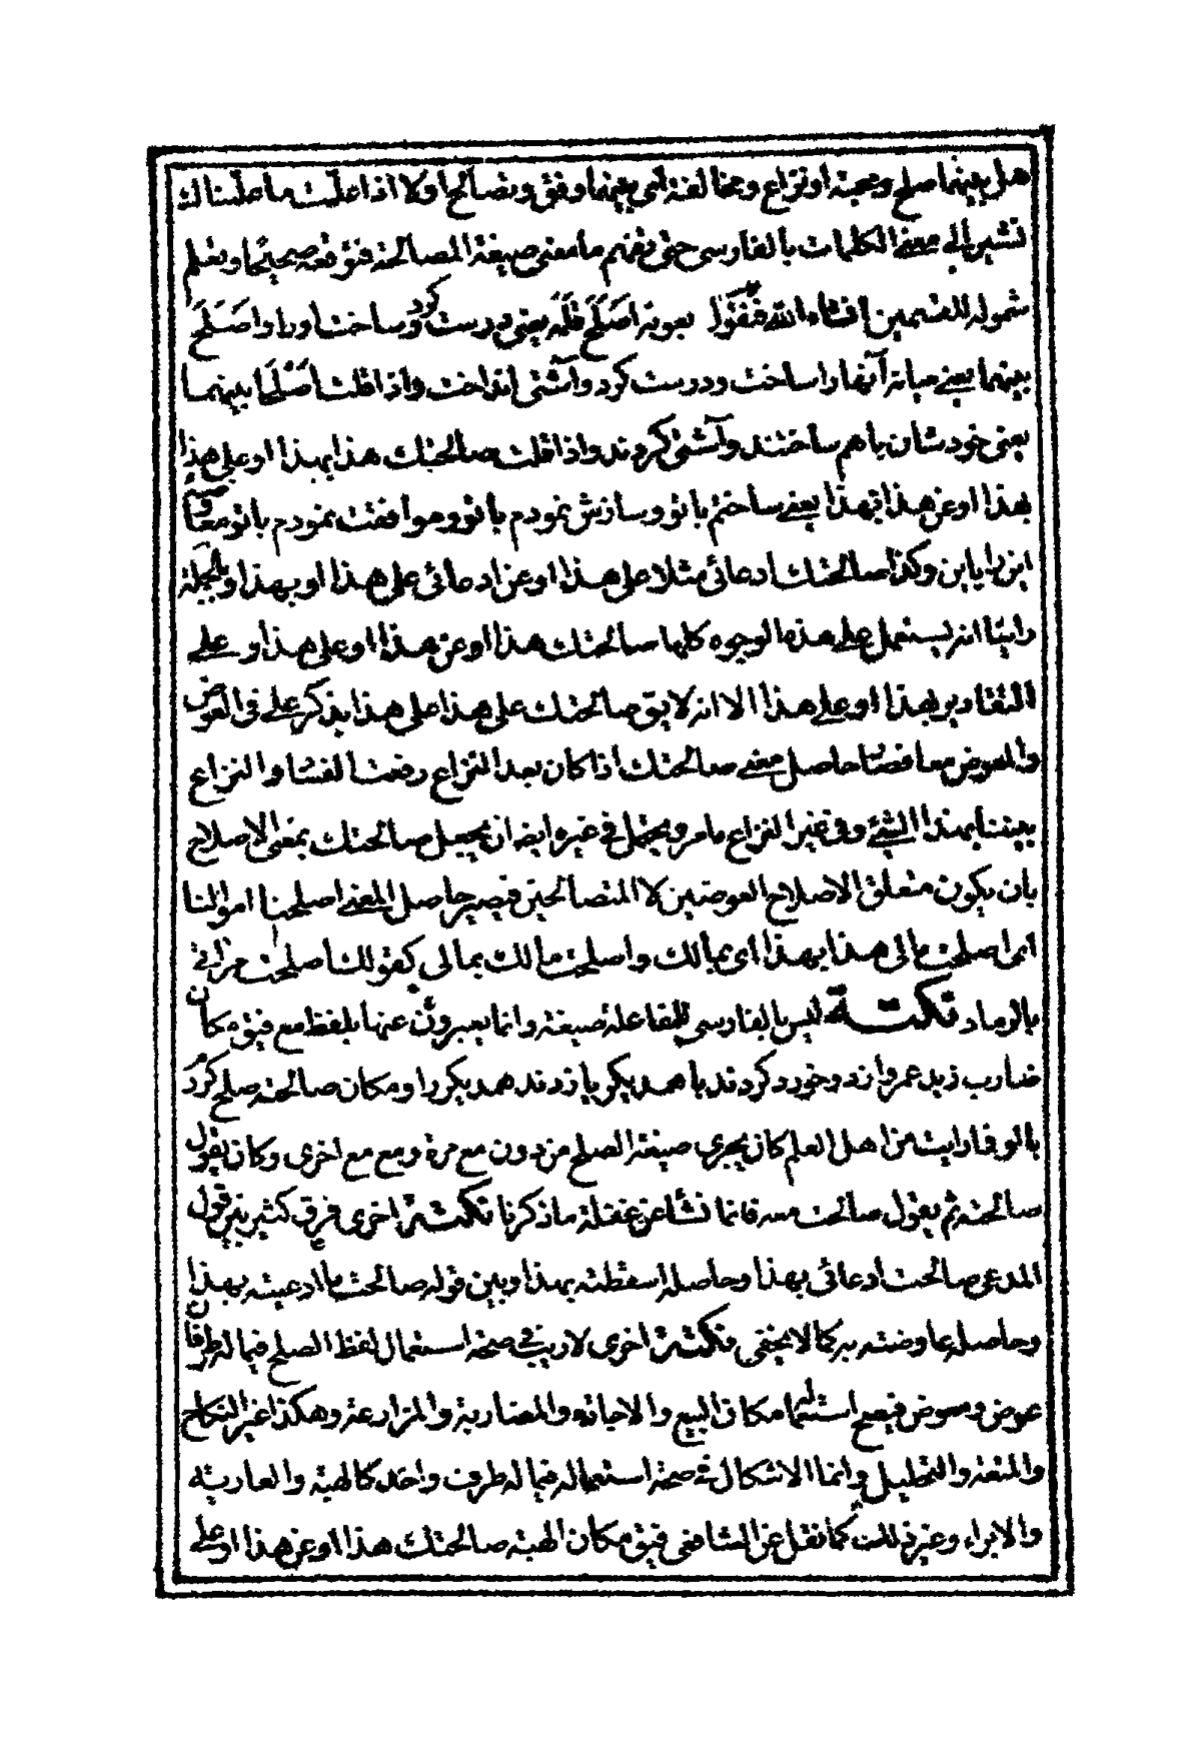 هل بينهما صلح ومحبة او نزاع ومخالفة اى بينهما وفق وتصالح اولا اذا علمت ما علمنا لك
نشير الى معنى الكلمات بالفارسى حتى تفهم ما معنى صيغة المصالحة فتوقعه صحيحًا وتعلم
شموله للقسمين انشاء الله فنقول بعونه اصلح قلمه يعنى درست كرد وساخت اورا واصلح
بينهما يعنى ميانه آنها را ساخت ودرست كرد وآشتى انداخت واذا قلت اصلحا بينهما
يعنى خودشان باهم ساختند وآشتى كردند واذا قلت صالحتك هذا بهذا او على هذا
بهذا او عن هذا بهذا يعنى ساختم باتو وسازش نمودم باتو وموافقت نمودم باتو
اين را باين وكذا صالحتك ادعائى مثلا على هذا او عن ادعائى على هذا او بهذا وبالجملة
راينا انه يستعمل على هذه الوجوه كلها صالحتك هذا او عن هذا او على هذا وعلى
التقادير بهذا او على هذا الا انه لايق صالحتك على هذا على هذا بذكر على فى العوض
والمعوض معا فصا حاصل معنى صالحتك اذا كان بعد النزاع رفعت الفسا والنزاع
بيننا بهذا الشئ وفى غير النزاع ما مر ويحتمل فى غيره ايضا ان يجعل صالحتك بمعنى الاصلاح
بان يكون متعلق الاصلاح العوضين لا المتصالحين فيصير حاصل المعنى اصلحنا اموالنا
اى اصلحت مالى هذا بهذا اى بمالك واصلحت مالك بمالى كقولك اصلحت
بالرماد نكتة ليس بالفارسى للمفاعلة صيغة وانما يعبرون عنها بلفظ مع فيق مكان
ضارب زيد عمروا زد وخورد كردند با همديكر يا زدند همديكر را ومكان صالحته صلح كرد
بااو فما رايت من اهل العلم كان يجرى صيغة الصلح من دون مع مرة ومع مع اخرى وكان يقول
صالحته ثم يقول صالحت معه فانما نشأ عن غفلة ما ذكرنا نكتة اخرى فرق كثير بين قول
المدعى صالحت ادعائى بهذا وحاصله اسقطته بهذا وبين قوله صالحت ما ادعيته بهذا
وحاصله عاوضته به كما لا يخفى نكتة اخرى لا ريب فى صحة استعمال لفظ الصلح فيما له طرفان
عوض ومعوض فيصح استعماله مكان البيع والاجارة والمضاربة والمزارعة وهكذا غير النكاح
والمتعة والتحليل وانما الاشكال فى صحة استعماله فيما له طرف واحد كالهبة والعارية
والابراء وغير ذلك كما نقل عن الشافعى فيق مكان الهبة صالحتك هذا او عن هذا او على